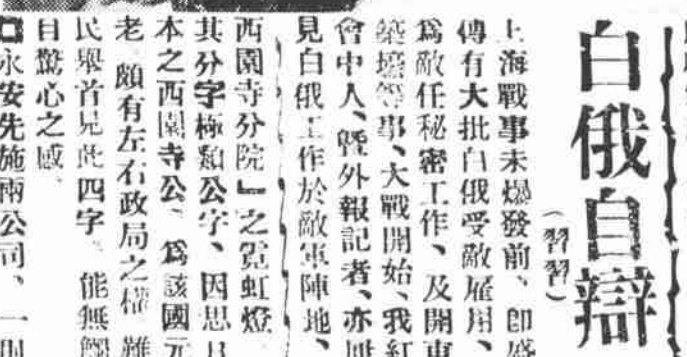 白俄自辯
（習習）
上海戰事未爆發前、卽盛
傳有大批白俄受敵雇用、
爲敵任秘密工作、及開東
築壕等事、大戰開始、我紅
會中人、曁外報記者、亦
見白俄工作於敵軍陣地、
西園寺分院」之霓虹燈
其分字極類公字、因思
本之西園寺公、爲該國元
老、頗有左右政局之權、難
民舉首見此四字、能無
目驚心之感、
永安先施兩公司、一